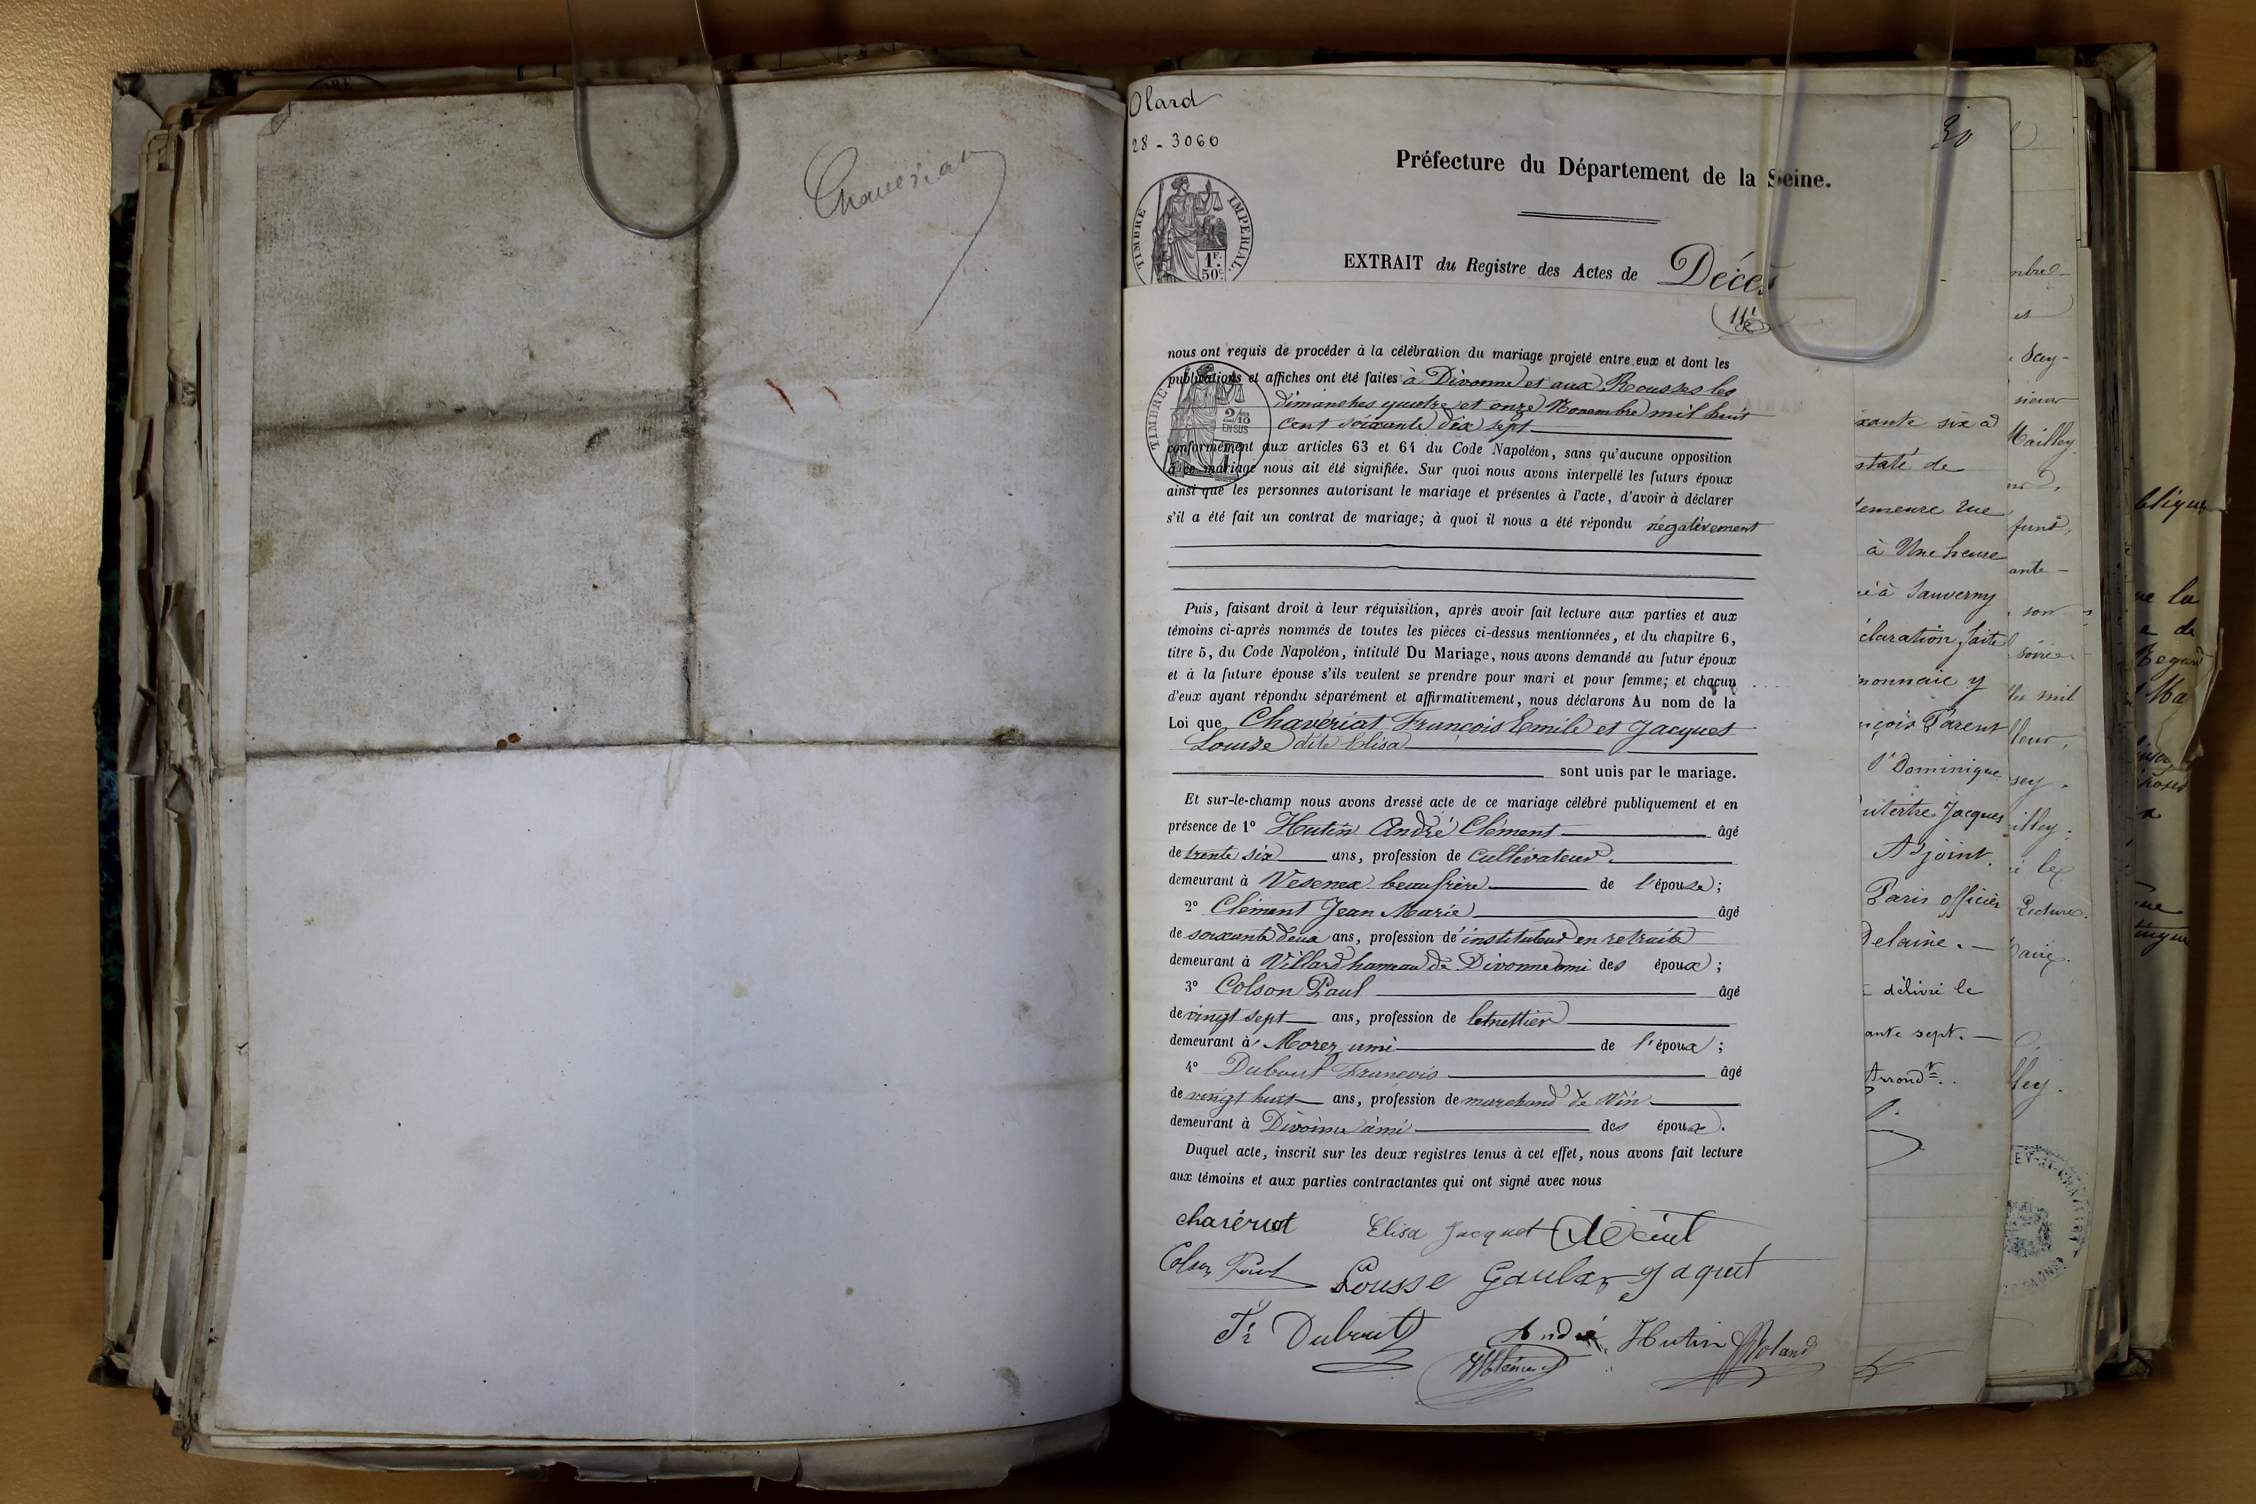 Chaveriat
Olard
28 - 3060
30
Préfecture du Département de la Seine.
TIMBRE IMPERIAL.
1F.
50c
EXTRAIT du Registre des Actes de Décès
nous ont requis de procéder à la célébration du mariage projeté entre eux et dont les
publications et affiches ont été faites à Divonne et aux Rousses les
dimanches quatre et onze Novembre mil huit
cent soixante dix sept
TIMBRE
2/10
EN SUS
conformément aux articles 63 et 64 du Code Napoléon, sans qu'aucune opposition
à ce mariage nous ait été signifiée. Sur quoi nous avons interpellé les futurs époux
ainsi que les personnes autorisant le mariage et présentes à l'acte, d'avoir à déclarer
s'il a été fait un contrat de mariage; à quoi il nous a été répondu négativement
Puis, faisant droit à leur réquisition, après avoir fait lecture aux parties et aux
témoins ci-après nommés de toutes les pièces ci-dessus mentionnées, et du chapitre 6,
titre 5, du Code Napoléon, intitulé Du Mariage, nous avons demandé au futur époux
et à la future épouse s'ils veulent se prendre pour mari et pour femme; et chacun
d'eux ayant répondu séparément et affirmativement, nous déclarons Au nom de la
Loi que Chavériat François Emile et Jacquet
Louise dite Elisa
sont unis par le mariage.
Et sur-le-champ nous avons dressé acte de ce mariage célébré publiquement et en
présence de 1° Hutin André Clément âgé
de trente six ans, profession de Cultivateur
demeurant à Vesenex beaufrère de l'épouse;
2° Clément Jean Marie âgé
de soixante deux ans, profession d'instituteur en retraite
demeurant à Villard hameau de Divonne ami des époux;
3° Colson Paul âgé
de vingt sept ans, profession de lunettier
demeurant à Morez ami de l'époux;
4° Dubout François âgé
de vingt huit ans, profession de marchand de Vin
demeurant à Divonne ami des époux.
Duquel acte, inscrit sur les deux registres tenus à cet effet, nous avons fait lecture
aux témoins et aux parties contractantes qui ont signé avec nous
chavériat Elisa Jacquet
Colson Paul Jaquet
Fs Dubout André Hutin
Clément
xante six à
staté de
demeure rue
à Une heure
né à Sauverny
claration faite
monnaie y
nçois Parent
St Dominique
utertre Jacques
Adjoint.
Paris officier
Delaine.
délivré le
ante sept.
Arrondt.
mbre
et
Scey-
sieur
Mailley.
ante
son
mil
sey.
illey.
les
Lecture.
Maire.
lley.
blique
ue la
de